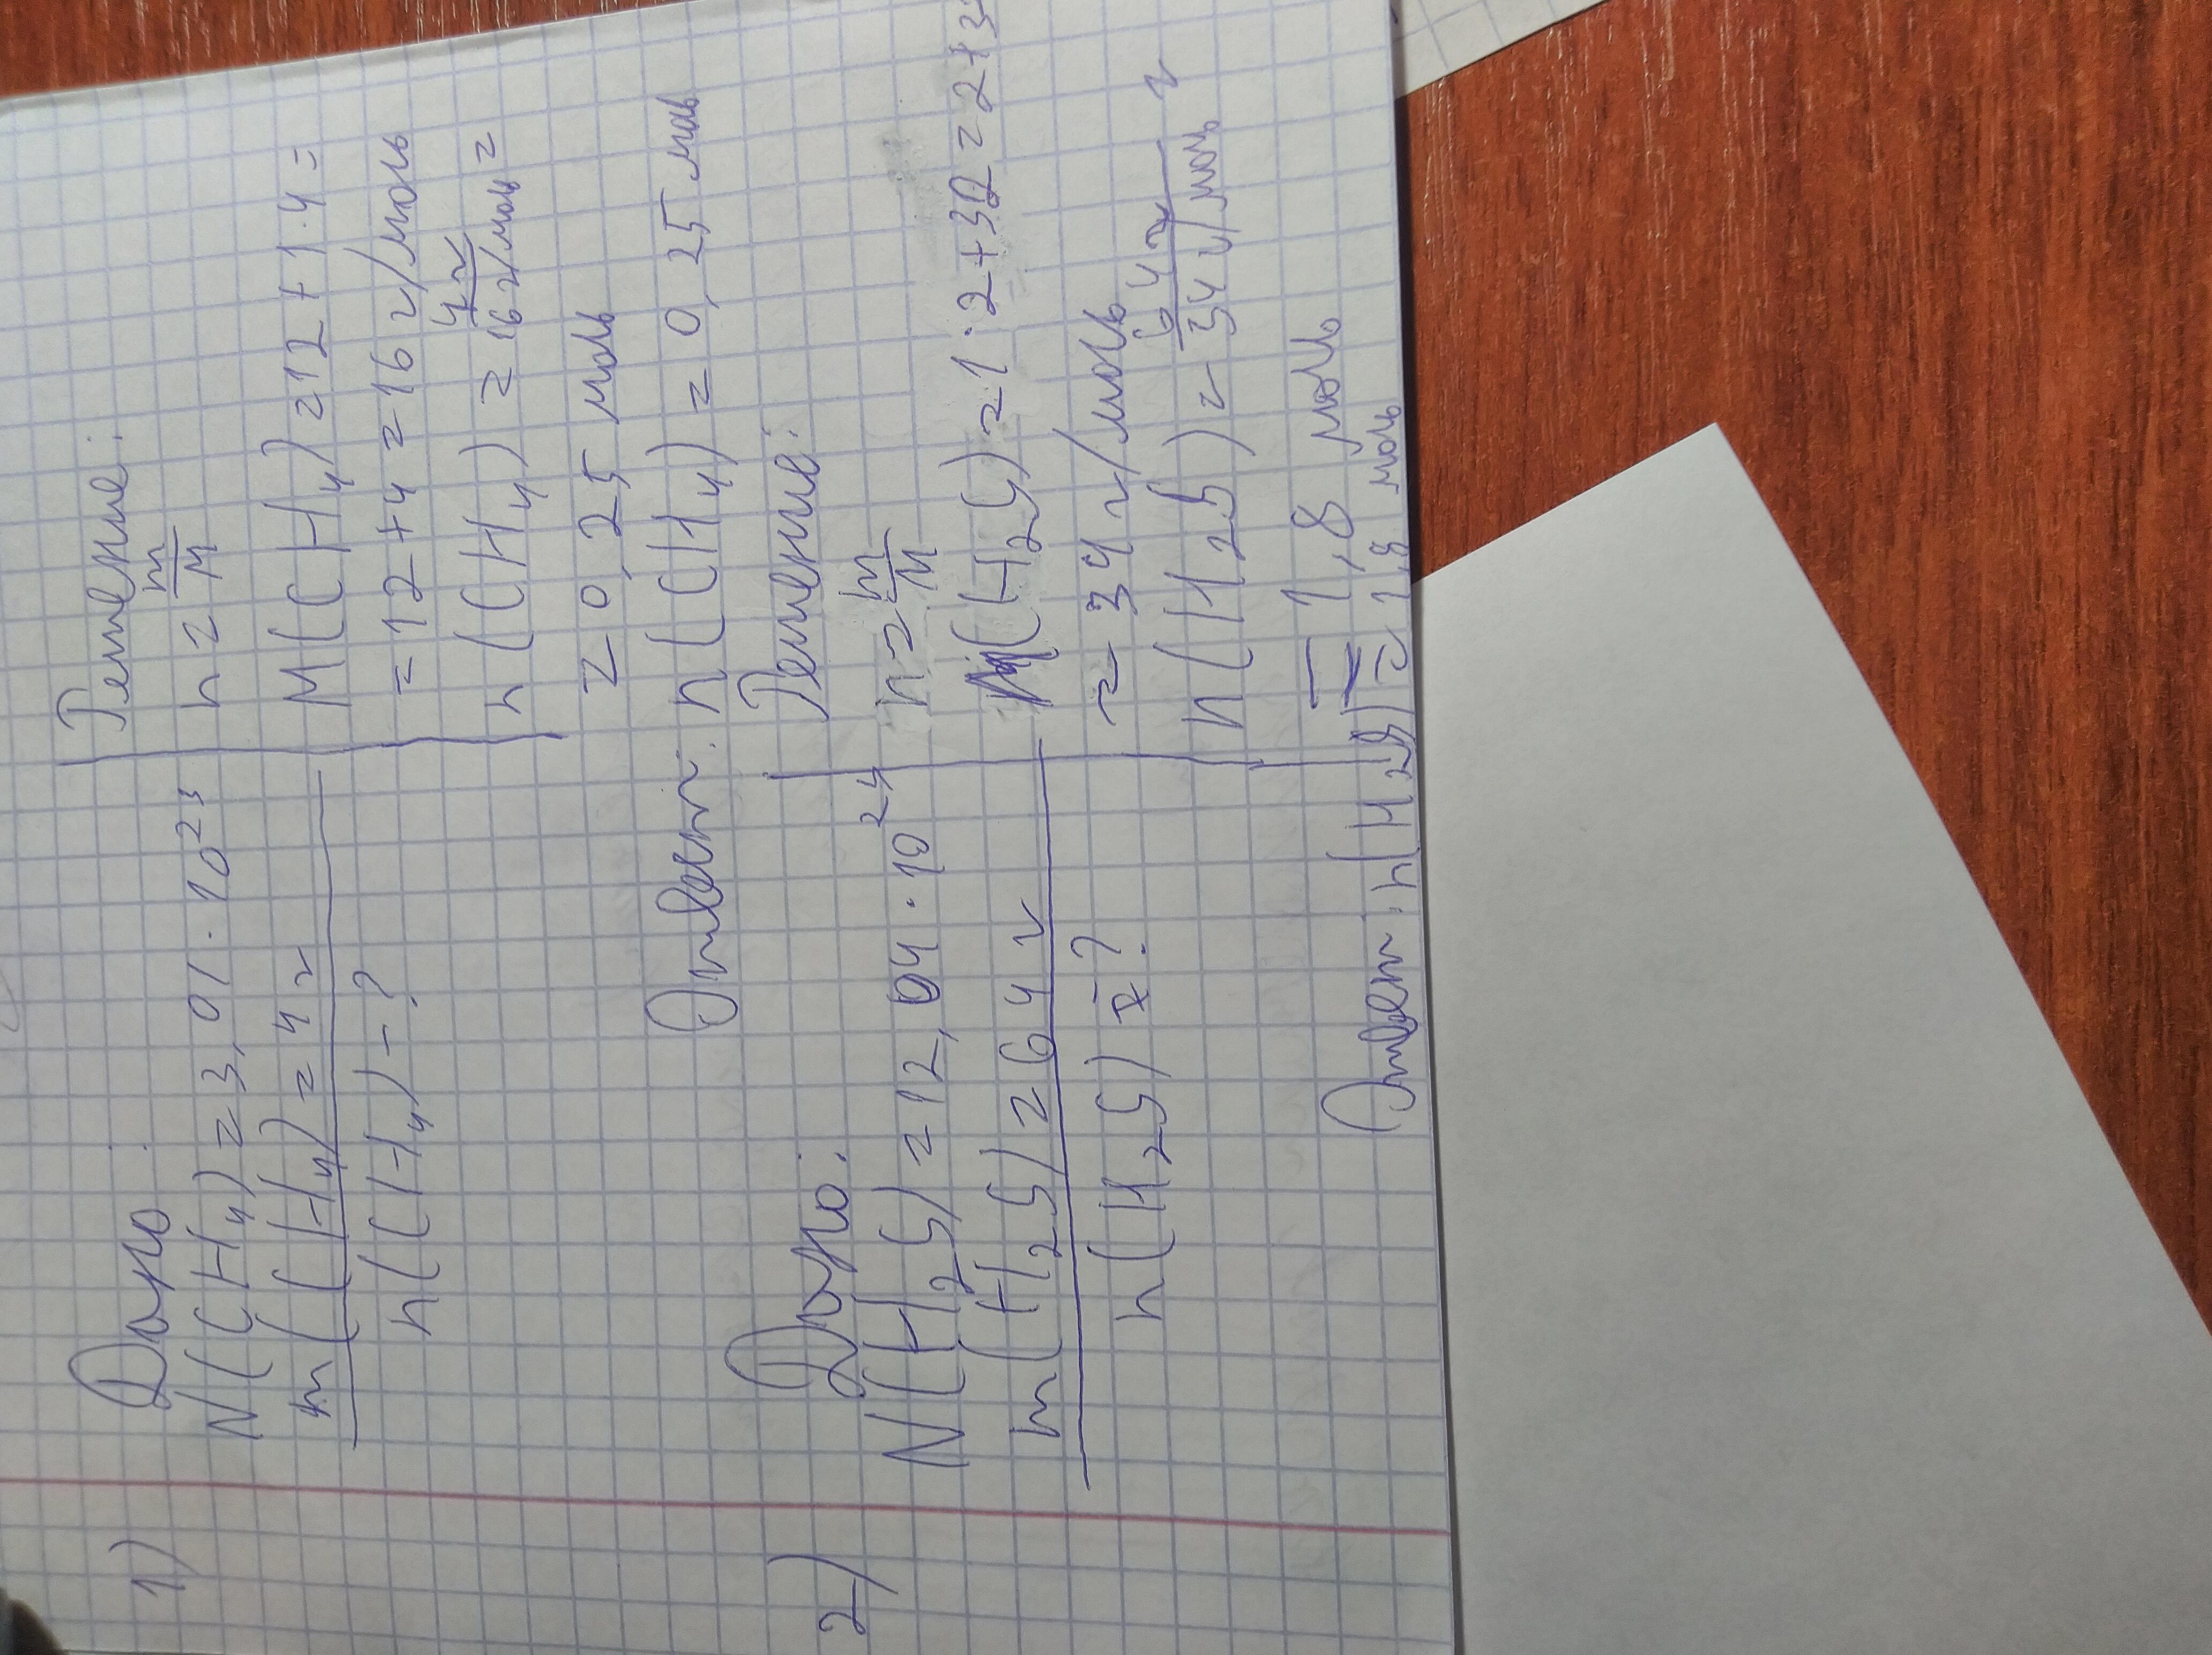 1)
Дано:
N(CH₄) = 3,01 · 10²³
m(CH₄) = 4 г
n(CH₄) - ?
Решение:
n = m/M
M(CH₄) = 12 + 1 · 4 =
= 12 + 4 = 16 г/моль
n(CH₄) = 4 г/16 г/моль =
= 0,25 моль
Ответ: n(CH₄) = 0,25 моль
2)
Дано:
N(H₂S) = 12,04 · 10²⁴
m(H₂S) = 64 г
n(H₂S) - ?
Решение:
n = m/M
M(H₂S) = 1 · 2 + 32 = 2 + 3
= 34 г/моль
n(H₂S) = 64 г/34 г/моль =
= 1,8 моль
Ответ: n(H₂S) = 1,8 моль